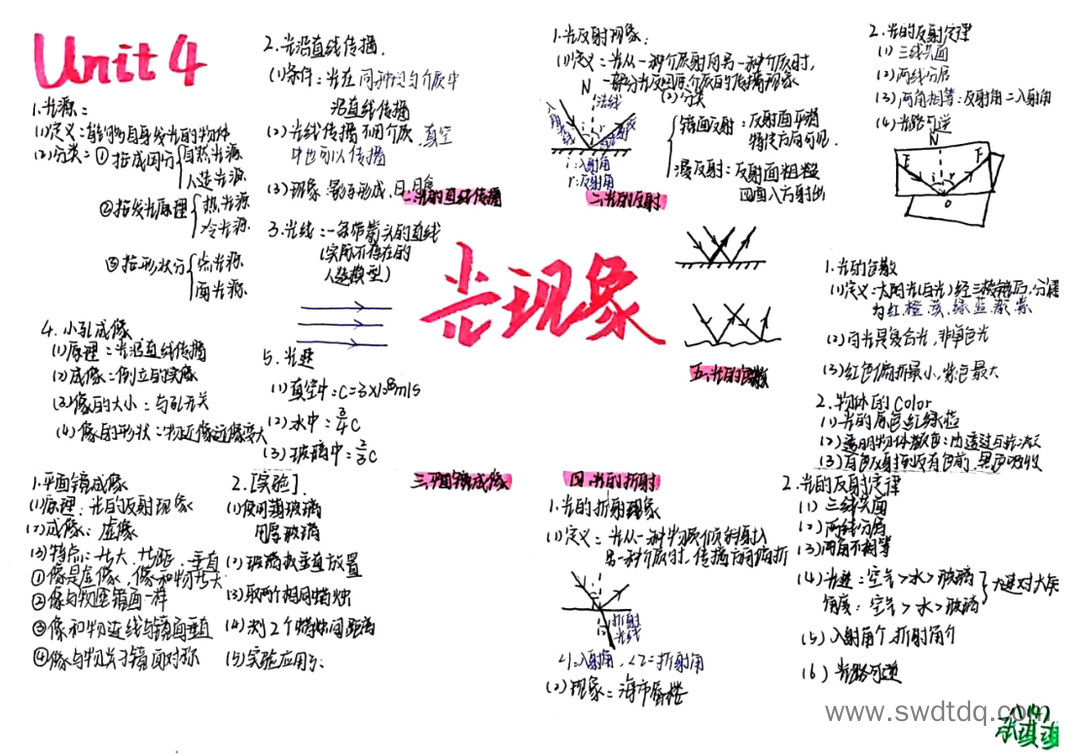 Unit 4
光现象
1.光源：
(1)定义：能够自身发光的物体
(2)分类：①按成因分 自然光源
人造光源
②按发光原理 热光源
冷光源
③按形状分 点光源
面光源
2.光沿直线传播.
(1)条件：光在同种均匀介质中
沿直线传播
(2)光线传播不用介质，真空
中也可以传播
(3)现象：影子形成、日、月食
一.光的直线传播
3.光线：一条带箭头的直线
(实际不存在的
人造模型)
4.小孔成像
(1)原理：光沿直线传播
(2)成像：倒立的实像
(3)像的大小：与孔无关
(4)像的形状：物近像远像变大
5.光速
(1)真空中：C=3×10⁸m/s
(2)水中：3/4 C
(3)玻璃中：2/3 C
1.光反射现象：
(1)定义：光从一种介质射向另一种介质时，
一部分光返回原介质的传播现象
N
法线
i r
i：入射角
r：反射角
(2)分类
镜面反射：反射面平滑
特定方向可见.
漫反射：反射面粗糙
四面八方射出
二.光的反射
2.光的反射定律
(1)三线共面
(2)两线分居
(3)两角相等：反射角=入射角
(4)光路可逆
N
E F
i r
O
五.光的色散
1.光的色散
(1)定义：太阳光(白光)经三棱镜后，分解
为红、橙、黄、绿、蓝、靛、紫
(2)白光是复合光，非单色光
(3)红色偏折最小，紫色最大
2.物体的Color
(1)光的原色红绿蓝
(2)透明物体颜色：由透过色光决定
(3)白色反射所有色光，黑色吸收
三.平面镜成像
1.平面镜成像
(1)原理：光的反射现象
(2)成像：虚像
(3)特点：等大、等距、垂直
①像是虚像，像和物等大
②像与物到镜面一样
③像和物连线与镜面垂直
④像与物关于镜面对称
2.[实验].
(1)使用薄玻璃
用厚玻璃
(2)玻璃板垂直放置
(3)取两个相同蜡烛
(4)测2个蜡烛间距离
(5)实验应用：
四.光的折射
1.光的折射现象
(1)定义：光从一种物质介质斜射入
另一种介质时，传播方向偏折
折射
光线
∠1=入射角，∠2=折射角
(2)现象：海市蜃楼
2.光的反射定律
(1)三线共面
(2)两线分居
(3)两角不相等
(4)光速：空气>水>玻璃
角度：空气>水>玻璃
光速对大角
(5)入射角个，折射角个
(6)光路可逆
www.swdtdq.com